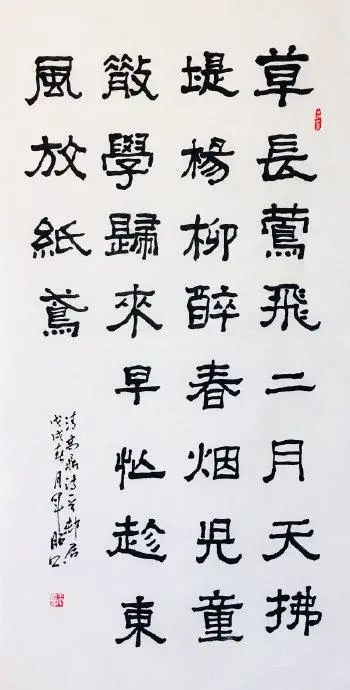 草長鶯飛二月天拂
堤楊柳醉春烟兒童
散學歸來早忙趁東
風放紙鳶
清高鼎诗邨居
戊戌春月